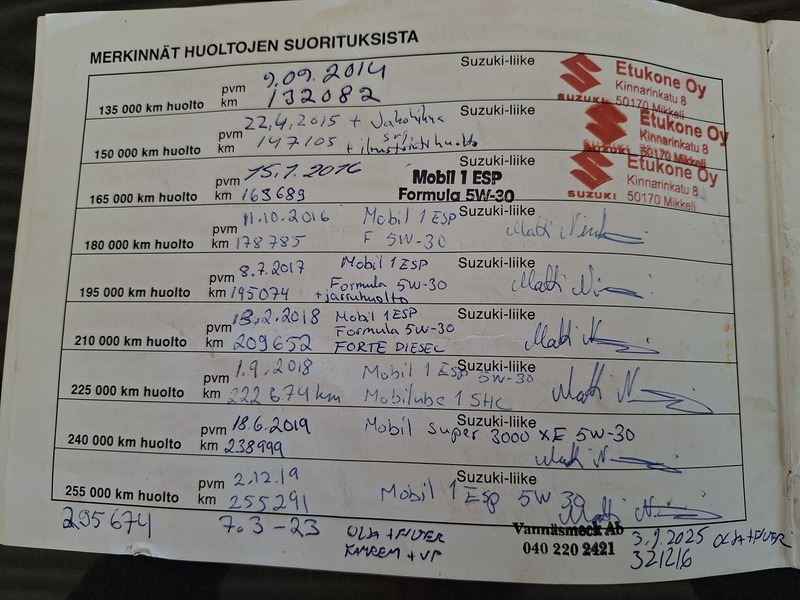 MERKINNÄT HUOLTOJEN SUORITUKSISTA
135 000 km huolto pvm 9.09.2014 Suzuki-liike
km 132082
SUZUKI Etukone Oy
Kinnarinkatu 8
50170 Mikkeli
150 000 km huolto pvm 22,4,2015 + Jakohihna Suzuki-liike
srj.
km 147105 + ilmastointihuolto
SUZUKI Etukone Oy
Kinnarinkatu 8
50170 Mikkeli
165 000 km huolto pvm 15.1.2016 Suzuki-liike
km 163689
Mobil 1 ESP
Formula 5W-30
SUZUKI Etukone Oy
Kinnarinkatu 8
50170 Mikkeli
180 000 km huolto pvm 11.10.2016 Mobil 1 ESP Suzuki-liike
km 178785 F 5W-30 Matti
195 000 km huolto pvm 8.7.2017 Mobil 1 ESP Suzuki-liike
km 195074 Formula 5W-30 Matti
+jarruhuolto
210 000 km huolto pvm 13.2.2018 Mobil 1 ESP Suzuki-liike
Formula 5W-30
km 209652 FORTE DIESEL Matti
225 000 km huolto pvm 1.9.2018 Mobil 1 ESP 5W-30 Suzuki-liike
km 222674 km Mobilube 1 SHC Matti
240 000 km huolto pvm 18.6.2019 Mobil Super 3000 XE 5W-30 Suzuki-liike
km 238999 Matti
255 000 km huolto pvm 2.12.19 Suzuki-liike
km 255291 Mobil 1 ESP 5W 30 Matti
295674 7.3-23 OLJA + FILTER
+ VP
Vannäsmeck Ab
040 220 2421
3.1.2025 OLJA+FILTER
321216